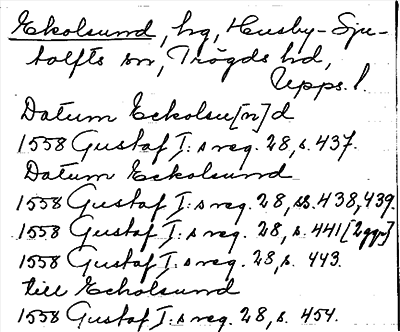 Ekolsund, hg, Husby-Sju-
tolfts sn, Trögds hd,
Upps. l.
Datum Eckolsu[n]d
1558 Gustaf I:s reg. 28, s. 437.
Datum Eckolsund
1558 Gustaf I:s reg. 28, ss. 438, 439.
1558 Gustaf I:s reg. 28, s. 441 [2ggr]
1558 Gustaf I:s reg. 28, s. 443.
till Echolsund
1558 Gustaf I:s reg. 28, s. 454.